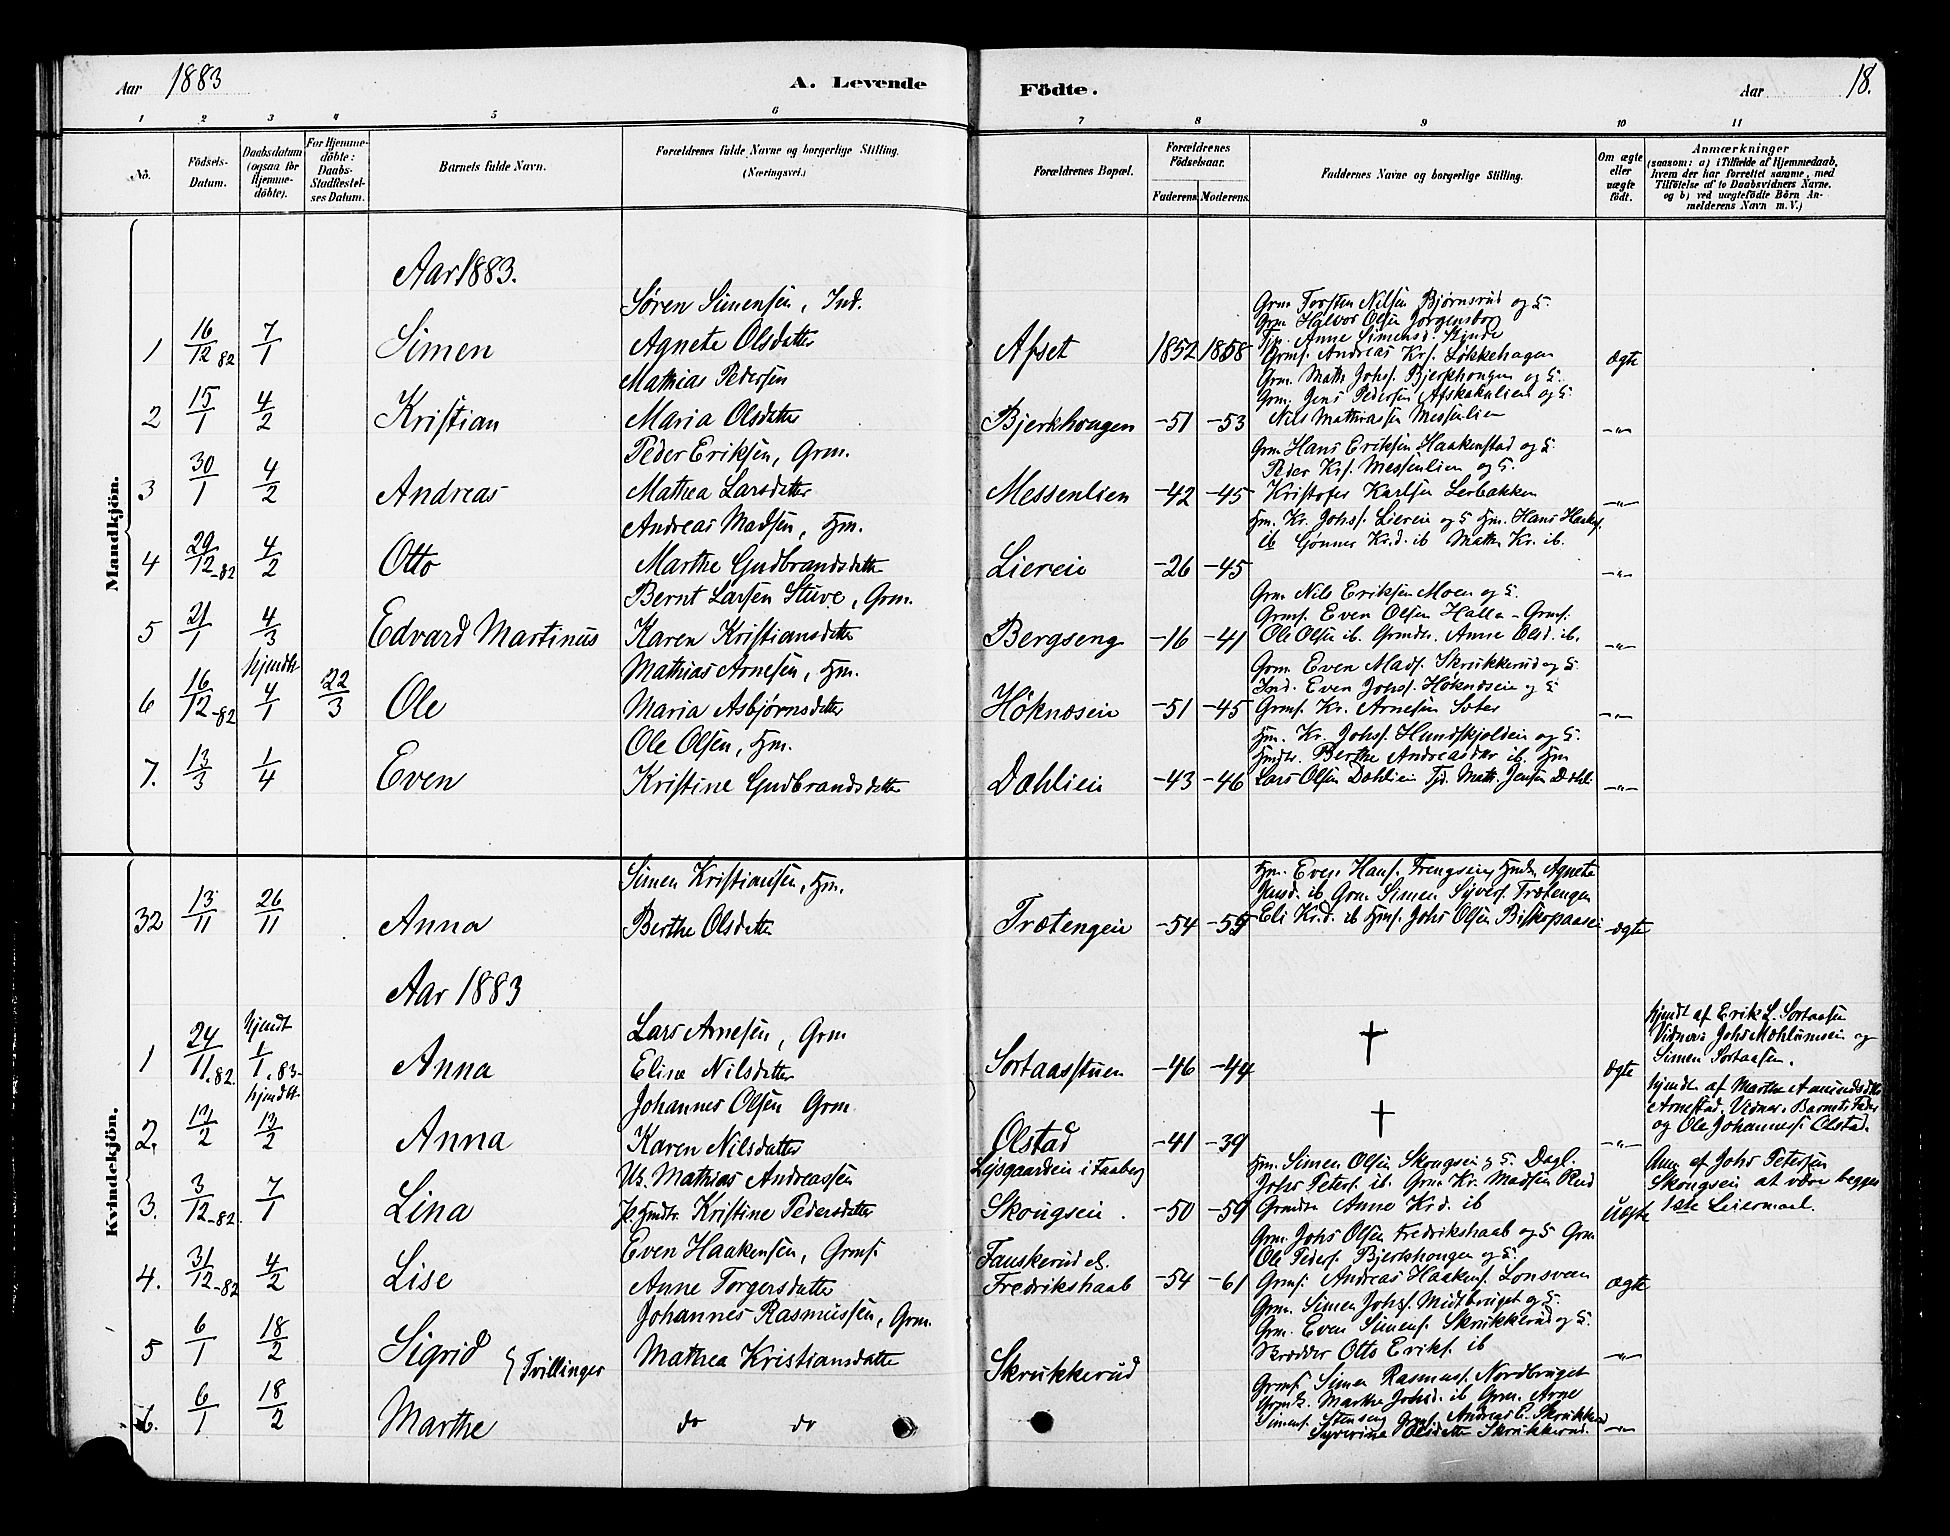 Aar 1883
A. Levende Födte.
Aar 18.
1 2 3 4 5 6 7 8 9 10 11
No.
Födsels-Datum.
Daabsdatum (ogsaa for Hjemme-döbte).
For Hjemme-döbte: Daabs-Stadfæstel-ses Datum.
Barnets fulde Navn.
Forældrenes fulde Navne og borgerlige Stilling. (Næringsvei.)
Forældrenes Bopæl.
Forældrenes Födselsaar.
Faderens. Moderens.
Faddernes Navne og borgerlige Stilling.
Om ægte eller uægte födt.
Anmærkninger
(saasom: a) i Tilfælde af Hjemmedaab,
hvem der har forrettet samme, med
Tilföielse af to Daabsvidners Navne.
og b) ved uægtefödte Börn An-
melderens Navn m. V.)
Mandkjön.
Aar 1883.
Søren Simensen, Ind.
Grm Torsten Nilsen Bjørnsrud og H.
Grm Halvor Olsen Jorgensborg
Tp. Anne Simensd. Kinde
1 16/12 82 7/1 Simen Agnete Olsdatter Afset 1852 1858 Grmf. Andreas Krf. Løkkehagen ægte
Mathias Pedersen
Grm. Math Johsf. Bjerkhougen og H.
Grm. Jens Pedersen Afskakalien og H.
2 15/1 4/2 Kristian Maria Olsdatter Bjerkhougen -51 -53 Nils Mathiassen Messenlien -"-
Peder Eriksen, Grm.
Grm Hans Eriksen Haakenstad og H.
Peder Krf. Messenlien og H.
3 30/1 4/2 Andreas Mathea Larsdatter Messenlien -42 -45 Kristofer Karlsen Lerbakken -"-
Andreas Madsen, Hm.
Hm. Kr. Johsf. Liereie og H Hm. Hans Haakf.
ib Gønner Kr.d. ib Mathr Kr. ib.
4 29/12-82 4/2 Otto Marthe Gudbrandsdatter Liereie -26 -45 -"-
Bernt Larsen Stuve, Grm.
Grm Nils Eriksen Moen og H.
Grmf. Even Olsen Halla - Grmf.
5 21/1 4/3 Edvard Martinus Karen Kristiansdatter Bergseng -16 -41 Ole Olsen ib. Grmdtr. Anne Olsd. ib. -"-
hjemdbt
Mathias Arnesen, Hm.
Grm. Even Madsf. Skrukkerud og H.
Ind. Even Johsf. Høknæseie og H
6 16/12-82 4/1 22/3 Ole Maria Asbjørnsdatter Høknæseie -51 -45 Grmf. Kr. Arnesen Sæter -"-
Ole Olsen, Hm.
Hm. Kr. Johsf. Hundskjoldeie og H.
Hmdtr. Berthe Andreasdtr ib. Hm
7. 13/3 1/4 Even Kristine Gudbrandsdatter Dæhlieie -43 -46 Lars Olsen Dæhlieie Tjd. Math. Jensen Dæhli -"-
Kvindekjön.
Simen Kristiansen, Hm.
Hm. Even Hansf. Frengseie, Hmdtr Agnete
Jensd. ib Grm. Simen Syversf. Trætengen
32 13/11 26/11 Anna Berthe Olsdatter Trætengeie -54 -55 Eli Krd. ib Hmf. Johs Olsen Biskopaaseie ægte
Aar 1883
hjemdbt
Lars Arnesen, Grm
hjemdt af Erik L. Sortaasen
Vidner: Johs Mæhlumseie og
Simen Sortaasen.
1 24/11.82. 1/1.83- Anna Eline Nilsdatter Sortaasstuen -46 -44 † ægte
hjemdbt
Johannes Olsen Grm
hjemdbt af Marthe Amundsdtr
Arnestad. Vidner: Barnets Fader
og Ole Johannesf. Olstad.
2. 12/2 13/2 Anna Karen Nilsdatter Olstad -41 -39 † -"-
Uk. Mathias Andreassen Lysgaardseie i Faaberg
Hm. Simen Olsen Skougseie og H. Dagl.
Johs Petersf. ib. Grm Kr. Madsen Rud
Anm. af Johs Petersen
Skougseie at være begges
1ste Leiermaal.
3. 3/12-82. 7/1 Lina P. Hmdtr. Kristine Pedersdatter Skougseie. -50 -59 Grmdtr Anne Kr.d. ib Uægte
Even Haakensen, Grmf. Fauskerud el.
Grm. Johs Olsen Fredrikshaab og H Grm
Ole Pedersf. Bjerkhougen og H.
4. 31/12-82 4/2 Lise Anne Torgersdatter Fredrikshaab -54 -61 Grmf. Andreas Haakensf. Lonsveen ægte
Johannes Rasmussen, Grm.
Grm. Simen Johsf. Midtbruget og H.
Grm. Even Simensf. Skrukkerud og H.
5 6/1 18/2 Sigrid } Tvillinger Mathea Kristiansdatter Skrukkerud Skrædder Otto Eriksf. ib -"-
Grmf. Simen Rasmusf. Nordbruget
Grmk. Marthe Johsd. ib Grm. Arne
6. 6/1 18/2 Marthe do do Simensf. Stenseng Grmf. Andreas E. Skrukkerud
Syverine Olsdatter Skrukkerud. -"-